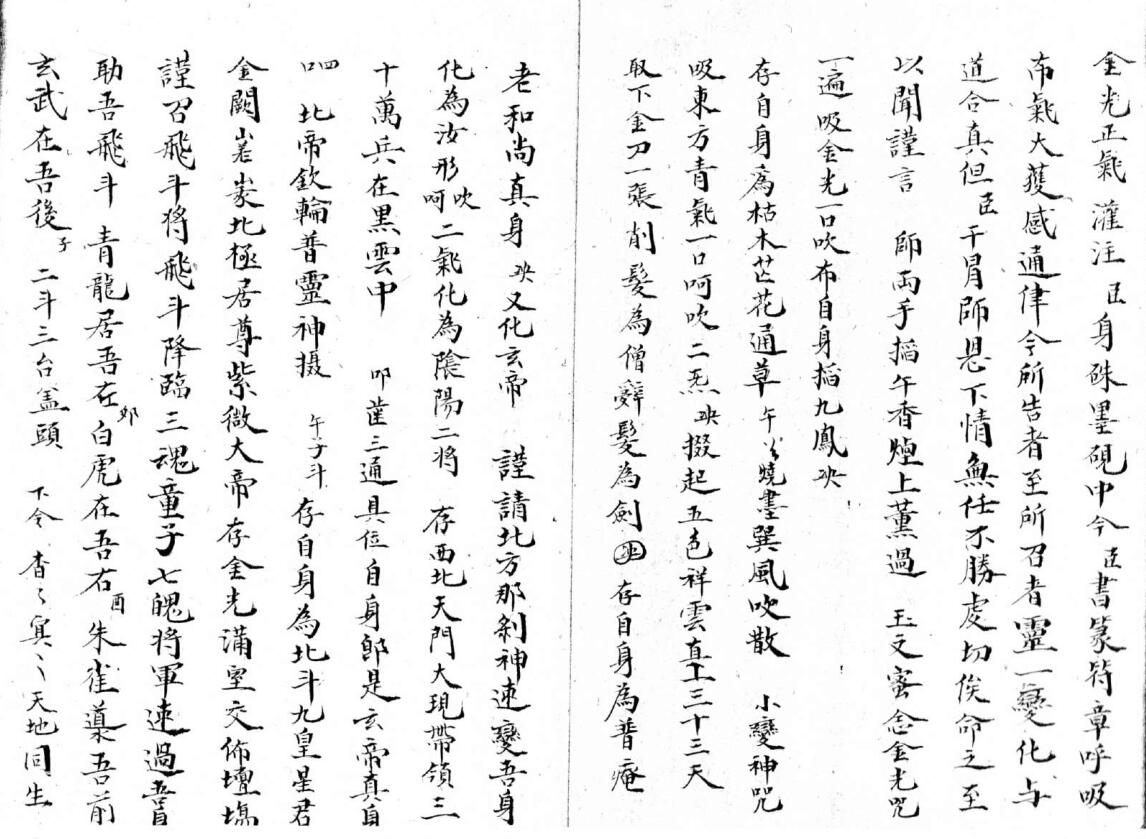 金光正氣灌注臣身硃墨硯中今臣書篆符章呼吸
布氣大獲感通律令所告者至所召者靈一變化与
道合真但臣干冒師恩下情無任不勝處切俟命之至
以聞謹言 師両手搯午香煙上薰過 玉文蜜念金光咒
一遍吸金光一口吹布自身搯九鳳玦
存自身為枯木芒花通草午燒盡巽風吹散 小變神咒
吸東方青氣一口呵吹二炁玦掇起五色祥雲直上三十三天
取下金刀一張削髮為僧辮髮為劍 存自身為普庵
老和尚真身玦又化玄帝 謹請北方那剎神速變吾身
化為汝形吹呵二氣化為陰陽二将 存西北天門大現帶領三
十萬兵在黑雲中 叩茁三通具位自身郎是玄帝真自
北帝欽輪普靈神摄 午子斗 存自身為北斗九皇星君
金闕嵳峩北極居尊紫微大帝存金光滿室交佈壇塲
謹召飛斗将飛斗降臨三魂童子七魄将軍速過吾
助吾飛斗 青龍居吾左卯白虎在吾右酉朱雀導吾前
玄武在吾後子 二斗三台盖頭 下令 杳々冥々天地同生